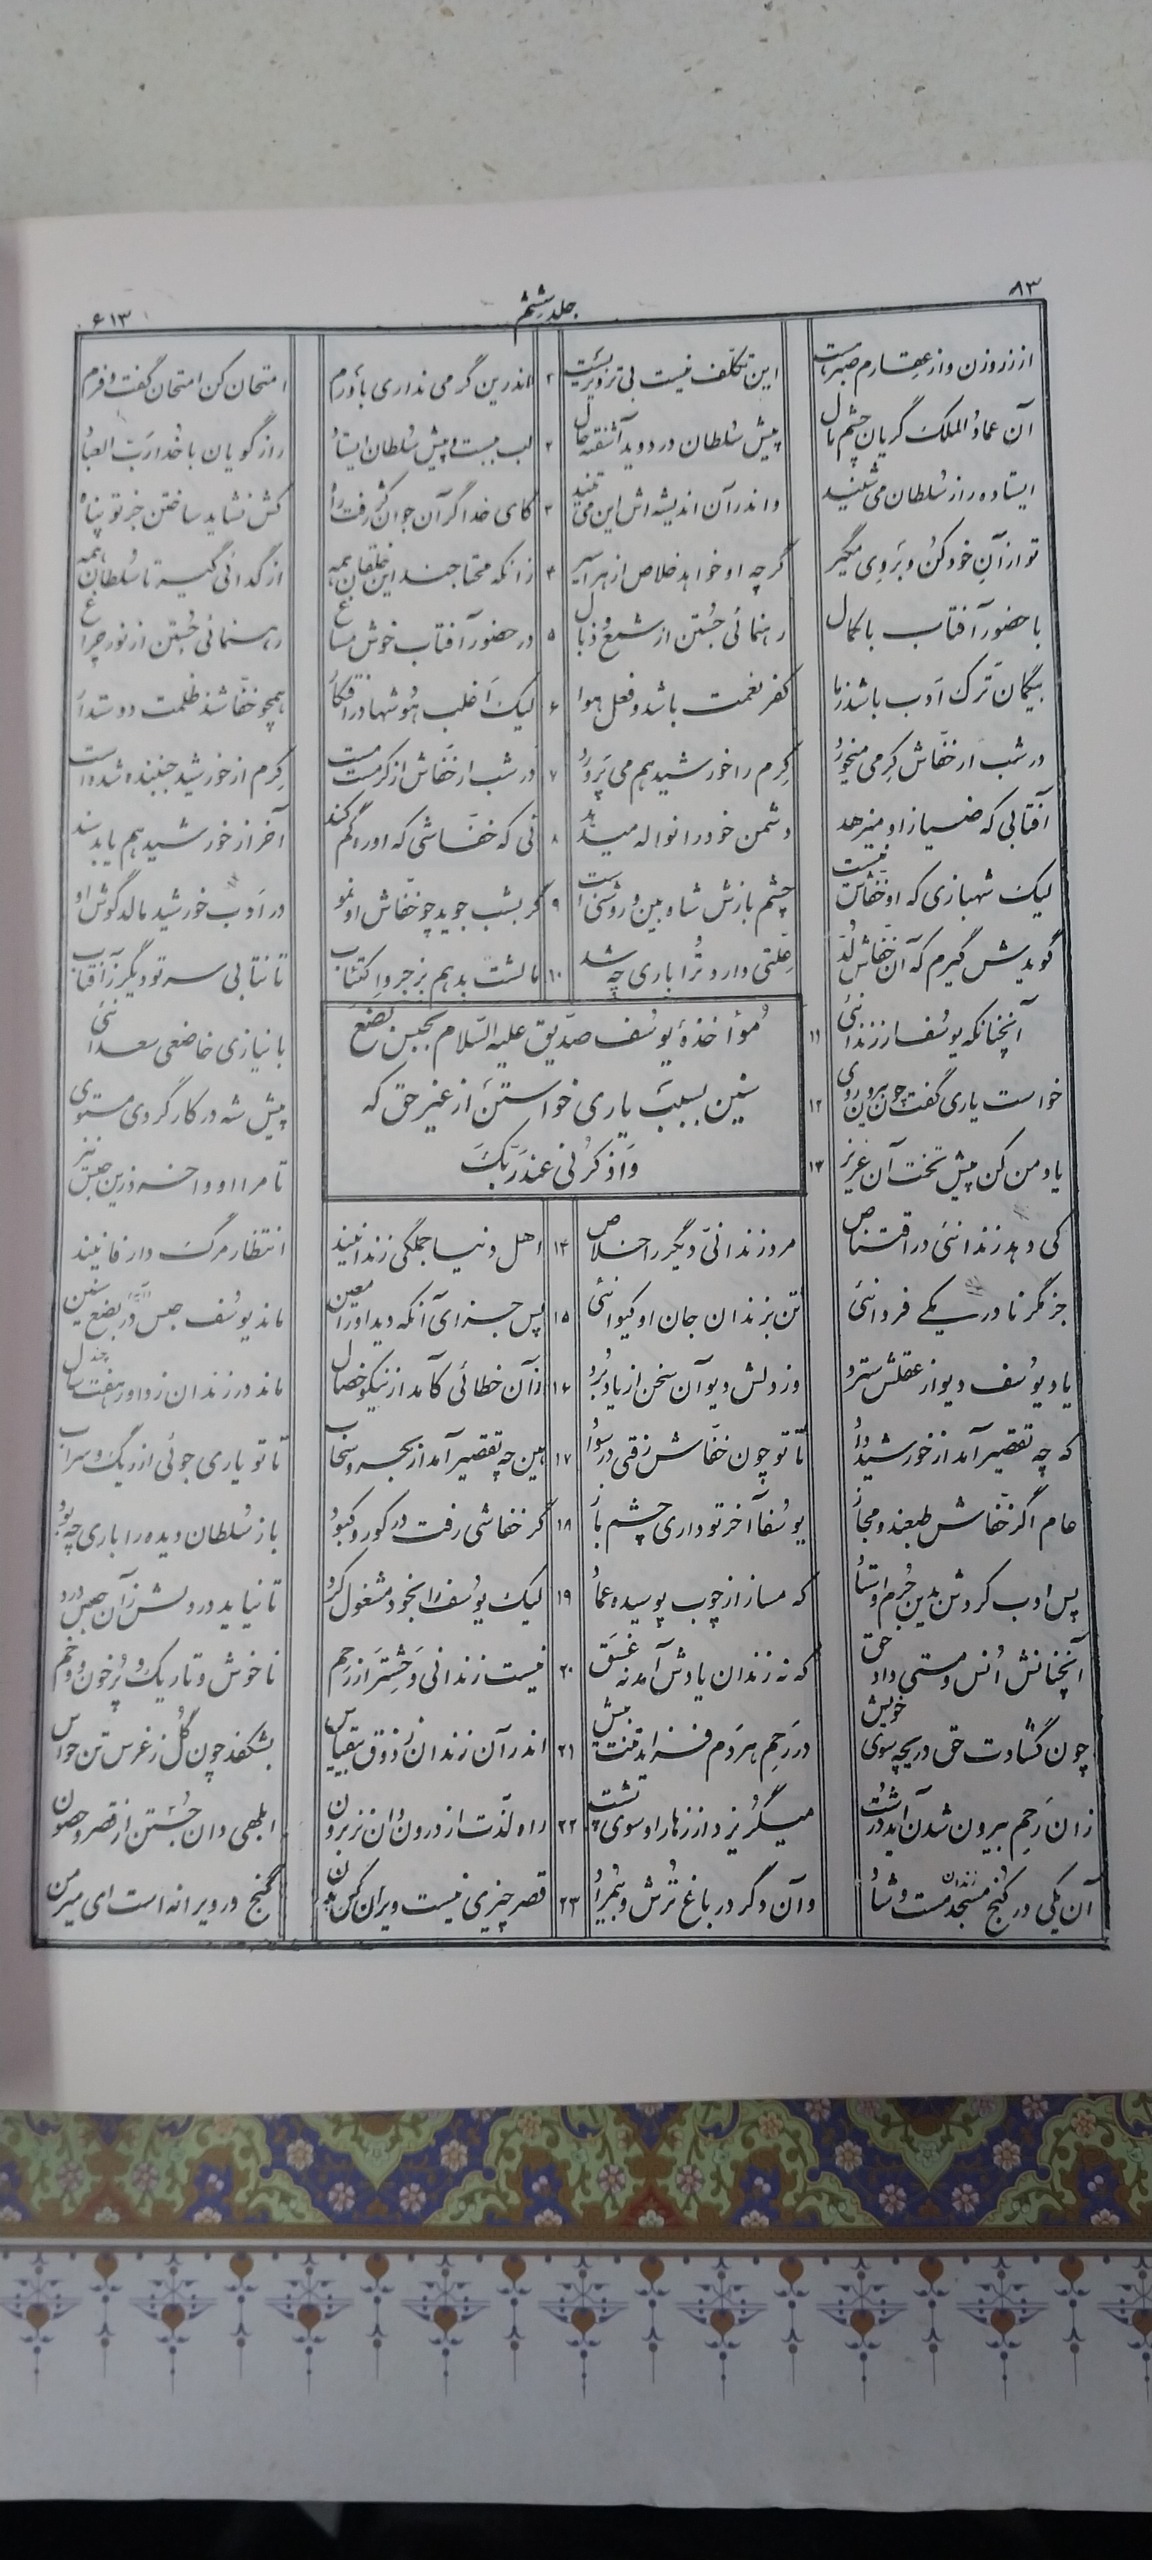 ۸۳ جلد ششم ۶۱۳
از زر و زن وز عقارم صبر هست این تکلف نیست بی تزویریست ۱ اندرین گر می نداری باورم امتحان کن امتحان گفت و فرم
آن عماد الملک گریان چشم مال پیش سلطان در دوید آشفته حال ۲ لب ببست و پیش سلطان ایستاد راز گویان با خدا رب العباد
ایستاده راز سلطان می شنید و اندر آن اندیشه اش این می تنید ۳ کای خدا گر آن جوان کژ رفت راه کش نشاید ساختن جز تو پناه
تو از آن خود کن و بر وی مگیر گرچه او خواهد خلاص از هر اسیر ۴ زانکه محتاجند این خلقان همه از گدائی گیر تا سلطان همه
با حضور آفتاب با کمال رهنمائی جستن از شمع و ذبال ۵ در حضور آفتاب خوش مساغ رهنمائی جستن از نور چراغ
بیگمان ترک ادب باشد ز ما کفر نعمت باشد و فعل هوا ۶ لیک اغلب هوشها در افتکار همچو خفاشند ظلمت دوستدار
در شب ار خفاش کرمی میخورد کرم را خورشید هم می پرورد ۷ در شب ار خفاش از کرمست مست کرم از خورشید جنبنده شده است
آفتابی که ضیا ز او میزهد دشمن خود را نواله میدهد ۸ نی که خفاشی که او ره گم کند آخر از خورشید هم یابد سند
لیک شهبازی که او خفاش نیست چشم بازش شاه بین و روشنی است ۹ گر بشب جوید چو خفاش او نمو در ادب خورشید مالد گوش او
گویدش گیرم که آن خفاش لد علتی دارد ترا باری چه شد ۱۰ مالشت بدهم بزجر و اکتئاب تا نتابی سر تو دیگر ز آفتاب
مؤاخذهٔ یوسف صدیق علیه السلام بحبس بضع
سنین بسبب یاری خواستن از غیر حق که
واذکرنی عند ربک
آنچنانکه یوسف از زندانئی ۱۱ با نیازی خاضعی سعدانئی
خواست یاری گفت چون بیرون روی ۱۲ پیش شه در کار گردی مستوی
یاد من کن پیش تخت آن عزیز ۱۳ تا مرا او واخرد زین حبس نیز
کی دهد زندانئی در اقتناص مرد زندانی دیگر را خلاص ۱۴ اهل دنیا جملگی زندانیند انتظار مرگ دار فانیند
جز مگر نادر یکی فردانئی تن بزندان جان او کیوانئی ۱۵ پس جزای آنکه دید او را معین ماند یوسف حبس در بضع سنین
یاد یوسف دیو از عقلش سترد وز دلش دیو آن سخن از یاد برد ۱۶ زآن خطائی کآمد از نیکو خصال ماند در زندان ز داور هفت سال
که چه تقصیر آمد از خورشید داد تا تو چون خفاش رفتی در سواد ۱۷ هین چه تقصیر آمد از بحر و سحاب تا تو یاری جوئی از ریگ و سراب
عام اگر خفاش طبعند و مجاز یوسفا آخر تو داری چشم باز ۱۸ گر خفاشی رفت در کور و کبود باز سلطان دیده را باری چه بود
پس ادب کردش بدین جرم اوستاد که مساز از چوب پوسیده عماد ۱۹ لیک یوسف را بخود مشغول کرد تا نیاید در دلش زآن حبس درد
آنچنانش انس و مستی داد حق که نه زندان یادش آمد نه غسق ۲۰ نیست زندانی وحش تر از رحم ناخوش و تاریک و پر خون و وخم
چون گشادت حق دریچه سوی خویش در رحم هر دم فزاید تنت بیش ۲۱ اندر آن زندان ز ذوق بیقیاس بشکفد چون گل ز غرس تن حواس
زان رحم بیرون شدن آید درشت میگریزد از زهار او سوی پشت ۲۲ راه لذت از درون دان نز برون ابلهی دان جستن از قصر و حصون
آن یکی در کنج مسجد زندان مست و شاد وآن دگر در باغ ترش و بیمراد ۲۳ قصر چیزی نیست ویران کن بدن گنج در ویرانه است ای میر من